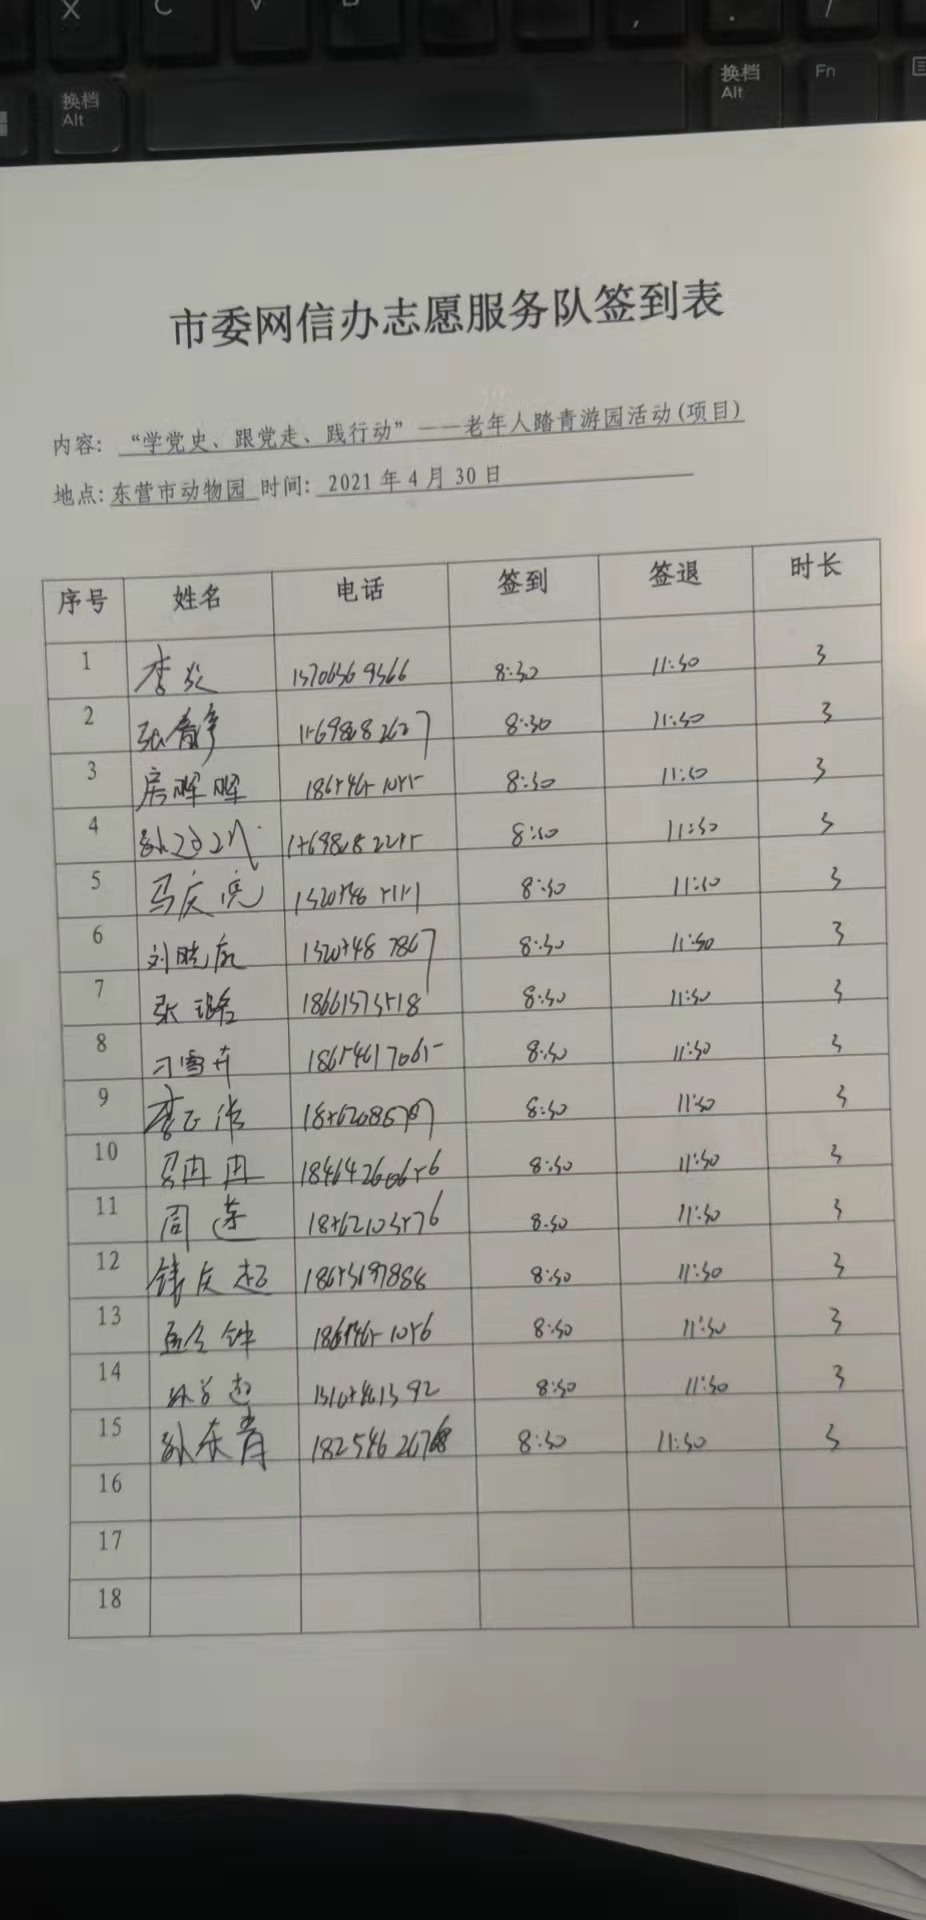 X C V B , . /
换档 换档 Fn
Alt Alt
市委网信办志愿服务队签到表
内容: “学党史、跟党走、践行动”——老年人踏青游园活动(项目)
地点: 东营市动物园 时间: 2021年4月30日
序号 姓名 电话 签到 签退 时长
1 8:30 11:30 3
2 张静 8:30 11:30 3
3 房晖晖 8:30 11:30 3
4 8:30 11:30 3
5 马庆亮 8:30 11:30 3
6 8:30 11:30 3
7 张璐 18661573518 8:30 11:30 3
8 刁雪卉 18654617065 8:30 11:30 3
9 8:30 11:30 3
10 冉冉 18464260656 8:30 11:30 3
11 周莲 18562103576 8:30 11:30 3
12 8:30 11:30 3
13 8:30 11:30 3
14 8:30 11:30 3
15 孙东青 8:30 11:30 3
16
17
18